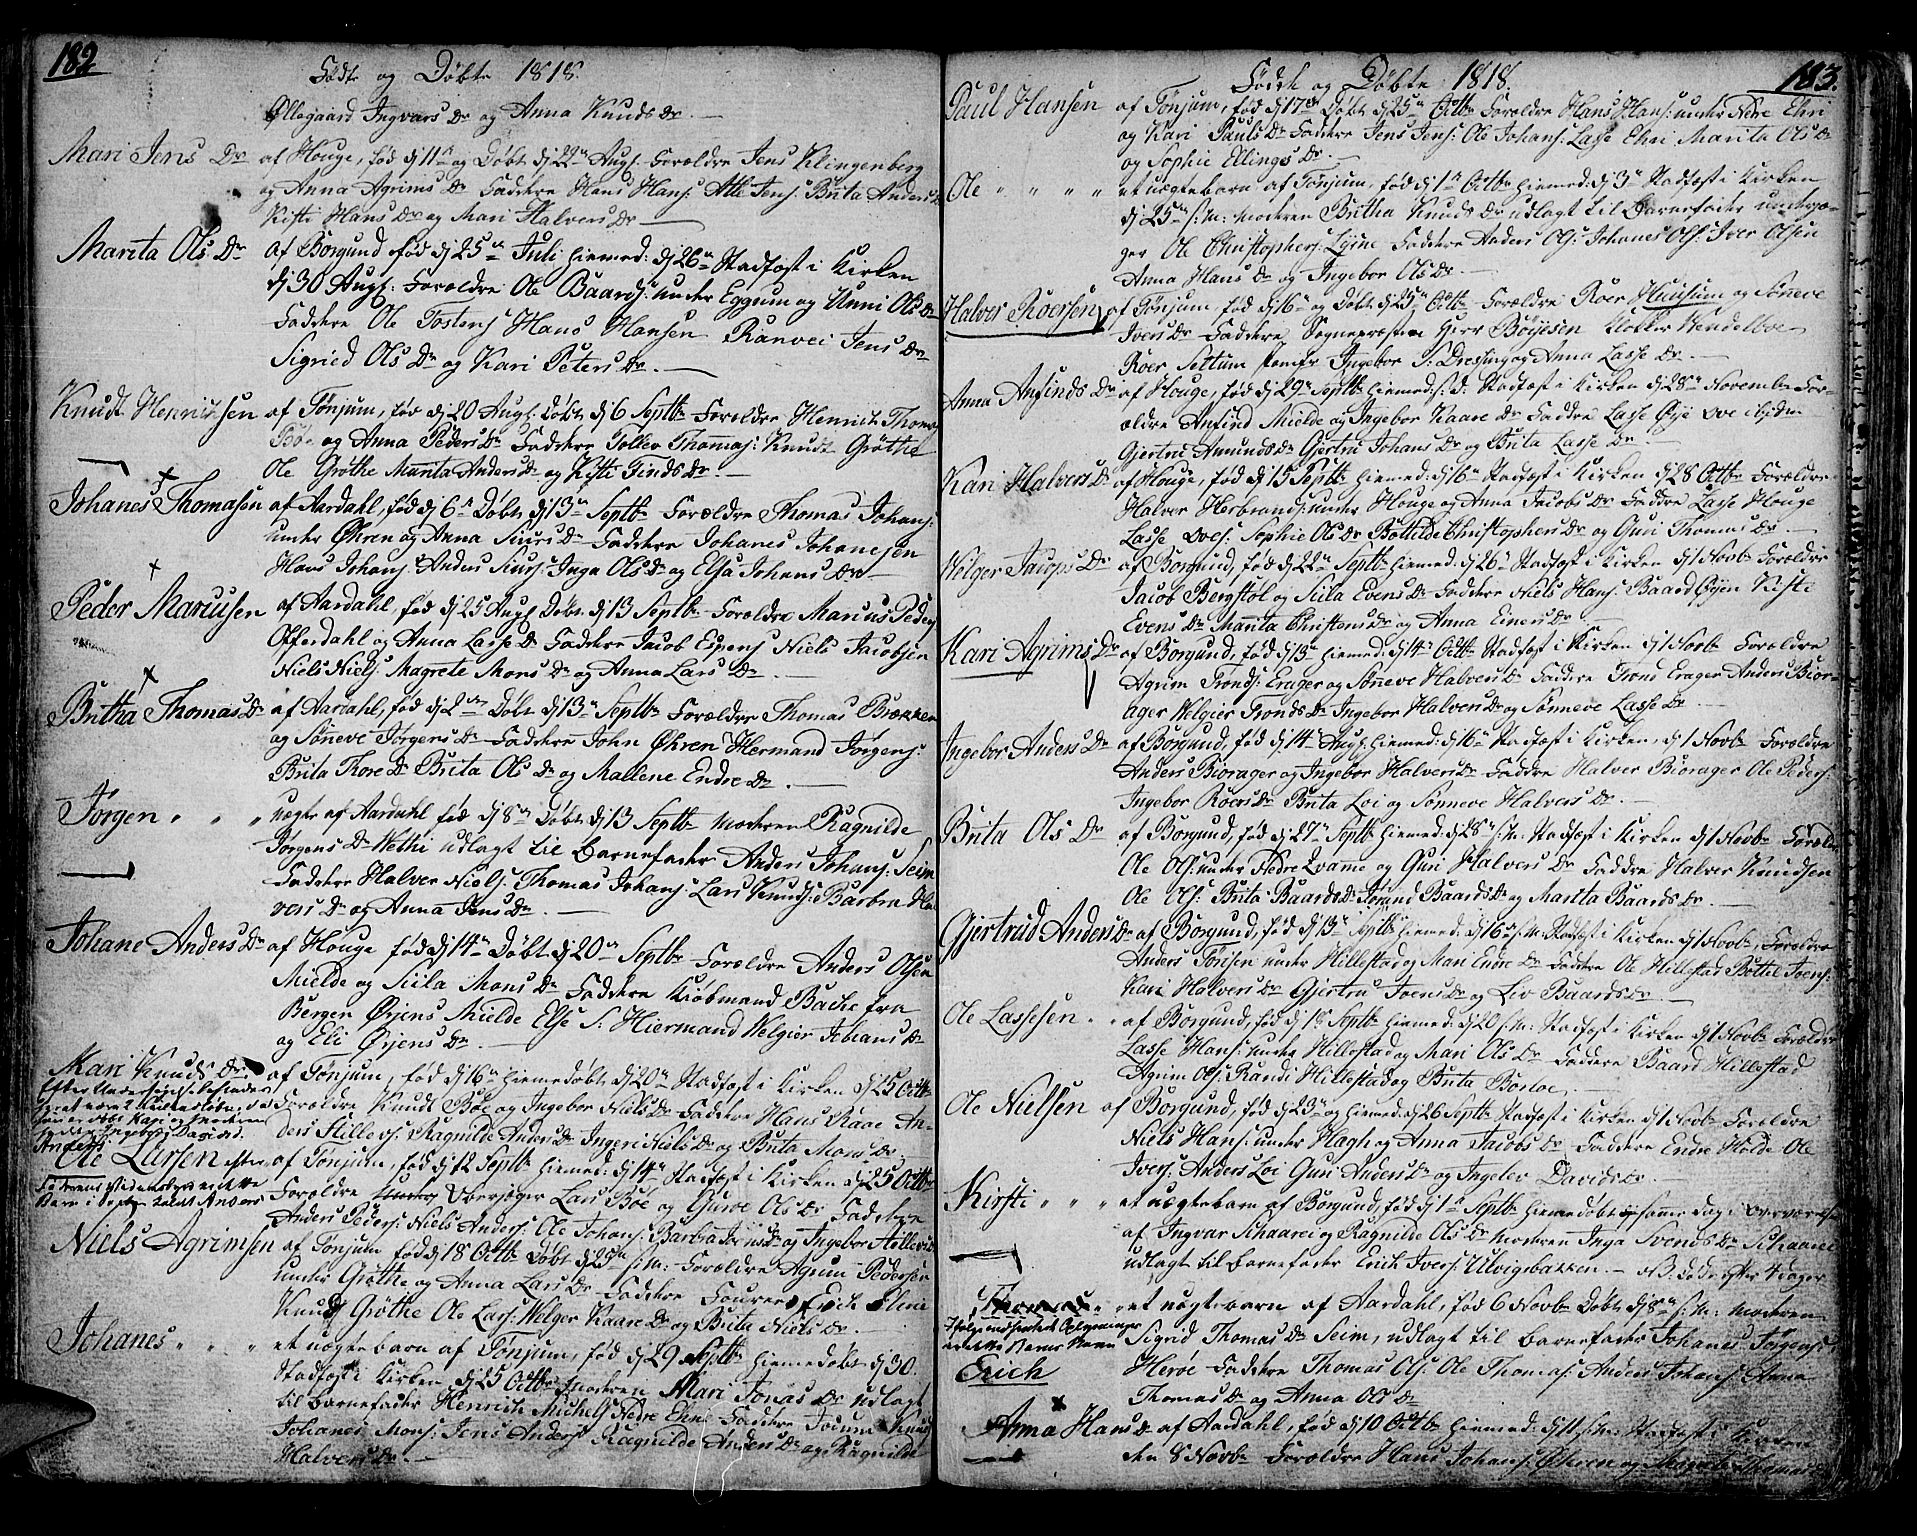 182
Fødte og Døbte 1818.
Ollegaard Ingvars Dr og Anna Knuds Dr. —
Mari Jens Dr af Houge, fød dj 11te og Døbt dj 22n Augs. Forældre Jens Klingenberg
og Anna Agrims Dr Faddere Hans Hans: Atle Jens: Brita Anders Dr
Kisti Hans Dr og Mari Halvers Dr —
Marita Ols Dr af Borgund fød dj 25n Juli hiemed: dj 26n Stadfæst i Kirken
dj 30 Augs: Forældre Ole Baards: under Eggum og Unni Ols Dr
Faddere Ole Tostens: Hans Hansen Ranvei Jens Dr
Sigried Ols Dr og Kari Peters Dr. —
Knudt Henrichsen af Tønjum, fød dj 20 Augs. Døbt dj 6 Septbr Forældre Henrich Thomas:
Bøe og Anna Peders Dr Faddere Tollev Thomas: Knudt Grøthe
Ole Grøthe Marita Anders Dr og Kisti Finds Dr
Johanes Thomasen af Aardahl, fød dj 6n Døbt dj 13n Septbr Forældre Thomas Johans:
under Øhren og Anna Siurs Dr Faddere Johanes Johanesen
Hans Johans: Anders Siurs: Inga Ols Dr og Elsa Johans Dr —
Peder Marcusen af Aardahl, fød dj 25 Augs Døbt dj 13 Septbr Forældre Marcus Peders:
Offerdahl og Anna Lasse Dr Faddere Jacob Espens: Niels Jacobsen
Niels Niels: Magrete Mons Dr og Anna Lars Dr. —
Britha Thomas Dr af Aardahl, fød dj 2den Døbt dj 13n Septbr Forældre Thomas Brækken
og Søneve Jørgens Dr Faddere John Øhren Hermand Jørgens:
Brita Thore Dr Brita Ols Dr og Malene Endre Dr. —
Jørgen " " " uægte af Aardahl fød dj 8n Døbt dj 13 Septbr Moderen Ragnilde
Jørgens Dr Wethi udlagt til Barnefader Anders Johans: Seim
Faddere Halver Niels: Thomas Johans: Lars Knuds: Barbra Hal-
vers Dr og Anna Jens Dr. —
Johane Anders Dr af Houge fød dj 14n Døbt dj 20n Septbr Forældre Anders Olsen
Mielde og Siila Mons Dr Faddere Kiøbmand Bache fra
Bergen Ørjens Mielde Else S: Hiermand Welgier Johans Dr
og Eli Ørjens Dr. —
Mari Knuds Dr. af Tønjum, fød dj 16n hiemedøbt dj 20n Stadfæst i Kirken dj 25 Octbr
Forældre Knudt Bøe og Ingebor Niels Dr Faddere Hans Kaae An-
ders Hillers: Ragnilde Anders Dr Ingeri Niels Dr og Brita Mons Dr. —
Ole Larsen af Tønjum, fød dj 12 Septbr hiemed: dj 14n Stadfæst i Kirken dj 25 Octbr
Forældre Overjæger Lars Bøe og Guroe Ols Dr Faddere
Anders Peders: Niels Anders: Ole Johans: Barbra Jens Dr og Ingebor
Niels Agrimsen af Tønjum fød dj 18 Octbr Døbt dj 25n s: M: Forældre Agrim Pedersen
under Grøthe og Anna Lars Dr Faddere Fourer Erich Elvne
Knudt Grøthe Ole Lars: Welger Kaare Dr og Brita Niels Dr.
Johanes " " " et uægte barn af Tønjum, fød dj 29 Septbr hiemedøbt dj 30.
Stadfæst i Kirken dj 25 Octbr Moderen Mari Jonas Dr udlagt
til barnefader Henrich Michels: Nedre Ehri Faddere Joduun Knuds
Johanes Mons: Jens Anders: Ragnilde Anders Dr og Ragnilde
Halvers Dr. —
183.
Fødde og Døbte 1818.
Paul Hansen af Tønjum, fød dj 17de Døbt dj 25n Octbr Forældre Hans Hans: under Nedre Ehri
og Kari Pauls Dr Faddere Jens Jens: Ole Johans: Lasse Ehri Marita Ols Dr
og Sophie Ellings Dr —
Ole " " " " et uægte barn af Tønjum, fød dj 1n Octbr hiemed: dj 3n Stadfæst i Kirken
dj 25n s: M: Moderen Britha Knuds Dr udlagt til Barnefader underjæ-
ger Ole Christophers: Lysne Faddere Anders Ols: Johanes Ols: Iver Olsen
Anna Hans Dr og Ingebor Ols Dr. —
Halver Roersen af Tønjum, fød dj 16n og Døbt dj 25n Octbr Forældre Roer Huusum og Søneve
Ivers Dr Faddere Sogneprästen Herr Böyesen Klokker Hendelboe
Roer Settum Jomfr Ingebor S: Dressing og Anna Lasse Dr. —
Anna Anfinds Dr af Houge, fød dj 29n Septbr hiemed: s: D: Stadfæst i Kirken dj 28n Novembr For-
ældre Anfind Mielde og Ingebor Kaare Dr Faddre Lasse Øye Ove ibidm
Gjertru Amunds Dr Gjertru Johans Dr og Brita Lasse Dr. —
Kari Halvers Dr af Houge, fød dj 15 Septbr hiemed: dj 16n Stadfæst i Kirken dj 28 Octbr Forældre
Halver Herbrands: under Houge og Anna Jacobs Dr Faddre Lasse Houge
Lasse Oves: Sophie Ols Dr Bottilde Christophers Dr og Guri Thomas Dr —
Welger Jacops Dr af Borgund, fød dj 22n Septbr hiemed: dj 26n Stadfæst i Kirken dj 1 Novbr Forældre
Jacob Bergstøl og Siila Evens Dr Faddere Niels Hans: Baard Øyen Kisti
Evens Dr Marita Christens Dr og Anna Einers Dr. —
Kari Agrims Dr af Borgund, fød dj 13n hiemed: dj 14n Octbr Stadfæst i Kirken dj 1 Novbr Forældre
Agrim Tronds: Erager og Søneve Halvers Dr Faddere Trond Erager Anders Bior-
ager Welgier Tronds Dr Ingebor Halvers Dr og Sønneve Lasse Dr. —
Ingebor Anders Dr af Borgund, fød dj 14n Augs: hiemed: dj 16n Stadfæst i Kirken, dj 1 Novbr Forældre
Anders Biorager og Ingebor Halvers Dr Faddre Halver Biorager Ole Peders:
Ingebor Roers Dr Brita Loi og Sønneve Halvers Dr. —
Brita Ols Dr af Borgund, fød dj 27n Septbr hiemed: dj 28n s: M: Stadfæst i Kirken dj 1 Novbr Forældre
Ole Ols: under Nedre Qvame og Guri Halvers Dr Faddre Halver Knudsen
Ole Ols: Brita Baards Dr Jorand Baards Dr og Marita Baards Dr. —
Gjertrud Anders Dr af Borgund, fød dj 13n Septbr hiemed: dj 16n s: M: Stadfæst i Kirken dj 1 Novbr, Forældre
Anders Torisen under Hillestad og Mari Endre Dr Faddre Ole Hillestad Bottel Ivers:
Kari Halvers Dr Gjertru Ivers Dr og Liv Baards Dr —
Ole Lassesen " " af Borgund, fød dj 18 Septbr hiemed: dj 20 s: M: Stadfæst i Kirken dj 1 Novbr Forældre
Lasse Hans: under Hillestad og Mari Ols Dr Faddere Baard Hillestad
Agrim Ols: Randi Hillestad og Brita Borloe
Ole Nielsen af Borgund, fød dj 23n og hiemed: dj 26 Septbr Stadfæst i Kirken dj 1 Novbr Forældre
Niels Hans: under Hagh og Anna Jacobs Dr Faddere Endre Holde Ole
Ivers: Anders Loi Guri Anders Dr og Ingeber Davids Dr. —
Kirsti " " et uægte barn af Borgund, fød dj 1n Septbr hiemedøbt samme Dag i Overværelse
af Ingvar Skaarei og Ragnilde Ols Dr Moderen Inga Svends Dr Schaarei
udlagt til Barnefader Erich Ivers: Ulvigsbakken. — NB. døde efter 4 dager
Thomas " " et uægte barn af Aardahl, fød 6 Novbr Døbt dj 8n s: M: Moderen
Ifølge indhentet Oplysninger
er dette Barns Navn
Erich
Sigrid Thomas Dr Seim, udlagt til Barnefader Johanes Jørgens:
Herøe Faddere Thomas Ols: Ole Thomas: Anders Johans: Anna
Thomas Dr og Anna Ols Dr
Anna Hans Dr af Aardahl, fød dj 10 Octbr hiemed: dj 11 s: M: Stadfæst i Kirken
den 8 Novbr Forældre Hans Johans: Øhren og Magrete Thomas Dr